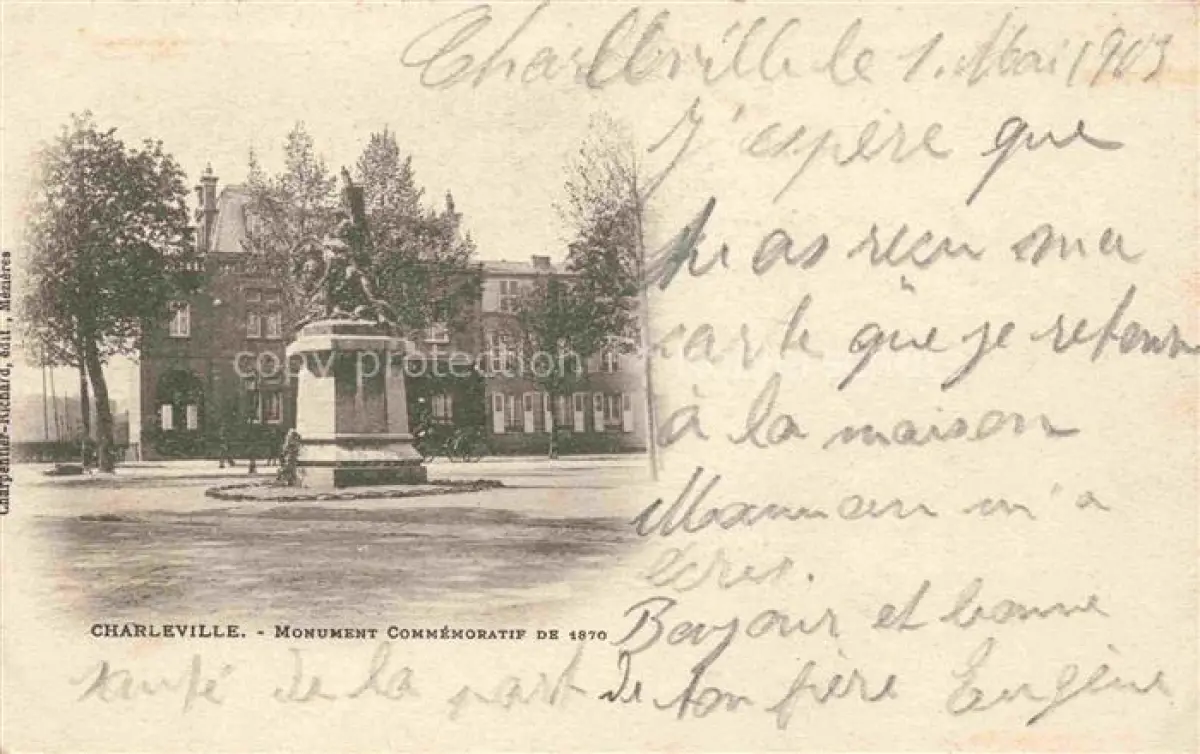 Charleville le 1. Mai 1903
J'espère que
tu as reçu ma
carte que je
à la maison
Maman m'a
écris.
Bonjour et bonne
santé de la part de ton frère Eugène
CHARLEVILLE. - MONUMENT COMMÉMORATIF DE 1870
Charpentier-Richard, édit., Mézières
copy protection